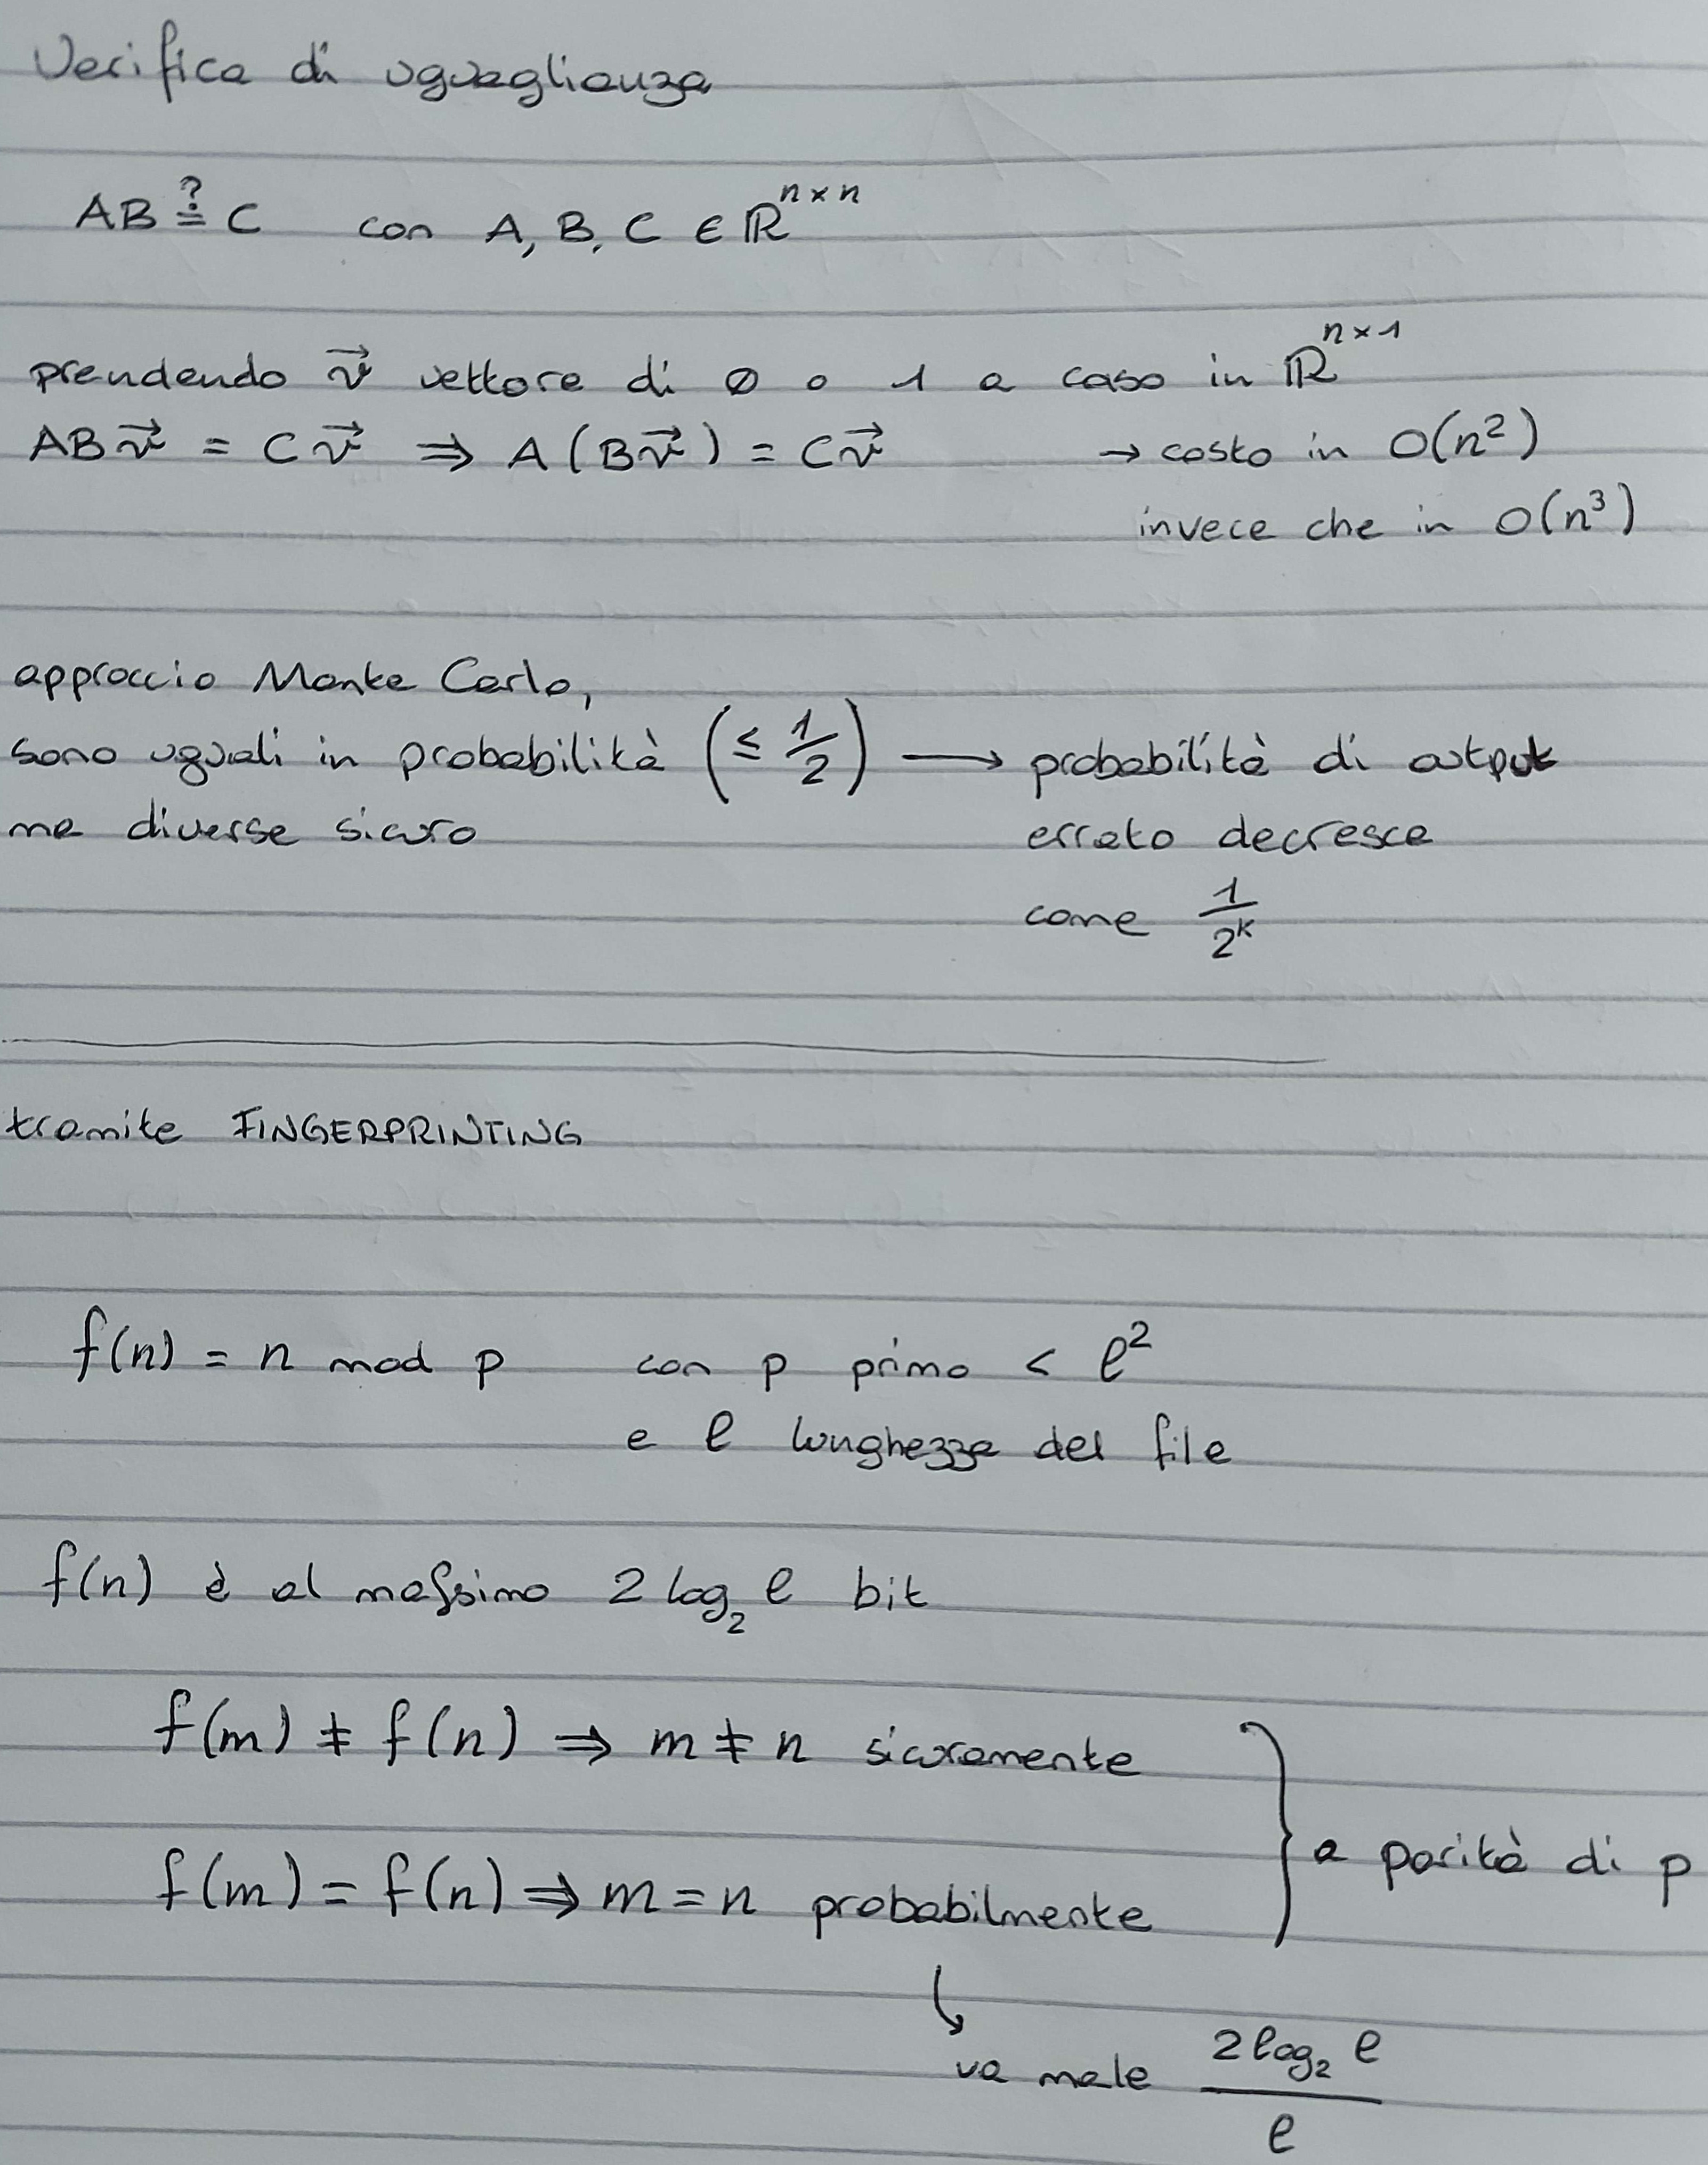 Verifica di uguaglianza
AB ≟ C con A, B, C ∈ ℝⁿˣⁿ
prendendo v⃗ vettore di 0 o 1 a caso in ℝⁿˣ¹
ABv⃗ = Cv⃗ ⇒ A(Bv⃗) = Cv⃗ → costo in O(n²)
invece che in O(n³)
approccio Monte Carlo,
sono uguali in probabilità (≤ 1/2) → probabilità di output
ma diverse sicuro errato decresce
come 1/2ᵏ
tramite FINGERPRINTING
f(n) = n mod p con p primo < ℓ²
e ℓ lunghezza del file
f(n) è al massimo 2 log₂ ℓ bit
f(m) ≠ f(n) ⇒ m ≠ n sicuramente
f(m) = f(n) ⇒ m = n probabilmente } a parità di p
↳ va male 2 log₂ ℓ / ℓ